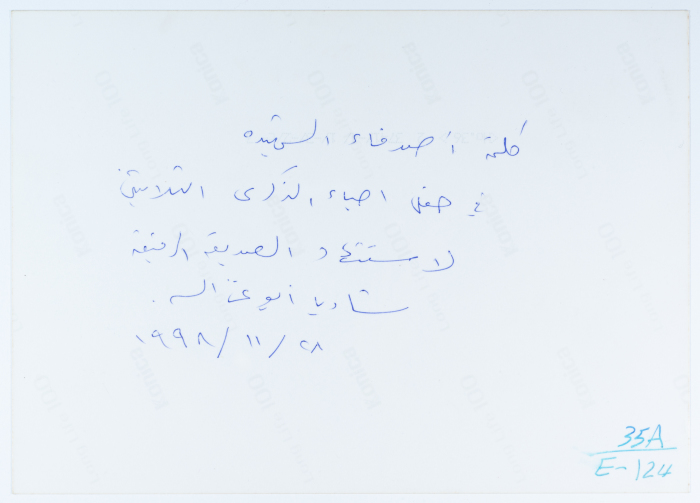 كلمة أصدقاء الشهيده
في حفل احياء الذكرى الثلاثين
لاستشهاد الصديقة الرفيقة
شاديا أبو غزاله .
٢٨ / ١١ / ١٩٩٨
35A
E-124